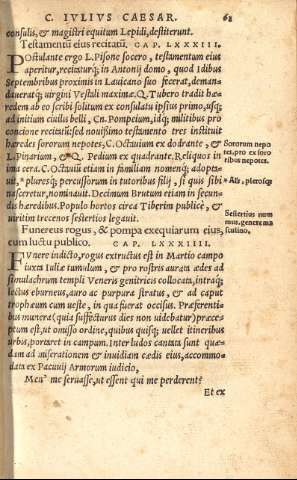 C. IVLIVS CAESAR. 68
consulis, & magistri equitum Lepidi, destiterunt.
Testamentū eius recitatū. CAP. LXXXIII.
POstulante ergo L. Pisone socero, testamentum eius
aperitur, recitaturq́; in Antonij domo, quod Idibus
Septembribus proximis in Lauicano suo fecerat, deman-
dauerátq; virgini Vestali maximæ. Q. Tubero tradit hæ-
redem ab eo scribi solitum ex consulatu ipsius primo, usq;
ad initium ciuilis belli, Cn. Pompeium, idq; militibus pro
concione recitatū: sed nouissimo testamento tres instituit
hæredes sororum nepotes, C. Octauium ex dodrante, &
L. Pinarium, & Q. Pedium ex quadrante. Reliquos in
ima cera. C. Octauiū etiam in familiam nomenq́; adopta-
uit, * pluresq́; percussorum in tutoribus filij, si quis sibi
nasceretur, nominauit. Decimum Brutum etiam in secun-
dis hæredibus. Populo hortos circa Tiberim publicè, &
uiritim trecenos sestertios legauit.
Sororum nepo
tes, pro ex soro
ribus nepotes.
* Als, plerosq;
Sestertius num
mus, genere ma
sculino.
Funereus rogus, & pompa exequiarum eius,
cum luctu publico. CAP. LXXXIIII.
FVnere indicto, rogus extructus est in Martio campo
iuxta Iuliæ tumulum, & pro rostris aurata ædes ad
simulachrum templi Veneris genitricis collocata, intraq́;
lectus eburneus, auro ac purpura stratus, & ad caput
trophæum cum ueste, in qua fuerat occisus. Præferenti-
bus munera (quia suffecturus dies non uidebatur) præce-
ptum est, ut omisso ordine, quibus quisq; uellet itineribus
urbis, portaret in campum. Inter ludos cantata sunt quæ-
dam ad miserationem & inuidiam cædis eius, accommo-
data ex Pacuuij Armorum iudicio,
Men' me seruasse, ut essent qui me perderent?
Et ex